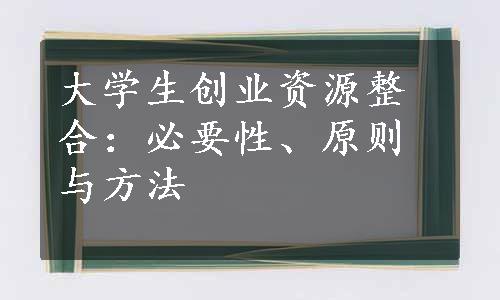 大学生创业资源整
合：必要性、原则
与方法